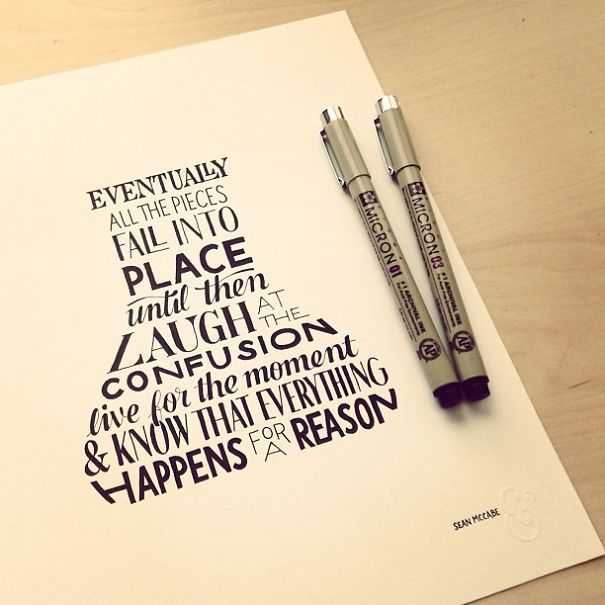 EVENTUALLY
ALL THE PIECES
FALL INTO
PLACE
until then
LAUGH AT THE
CONFUSION
live for the moment
& KNOW THAT EVERYTHING
HAPPENS FOR A REASON
MICRON 01
MICRON 03
SEAN MCCABE